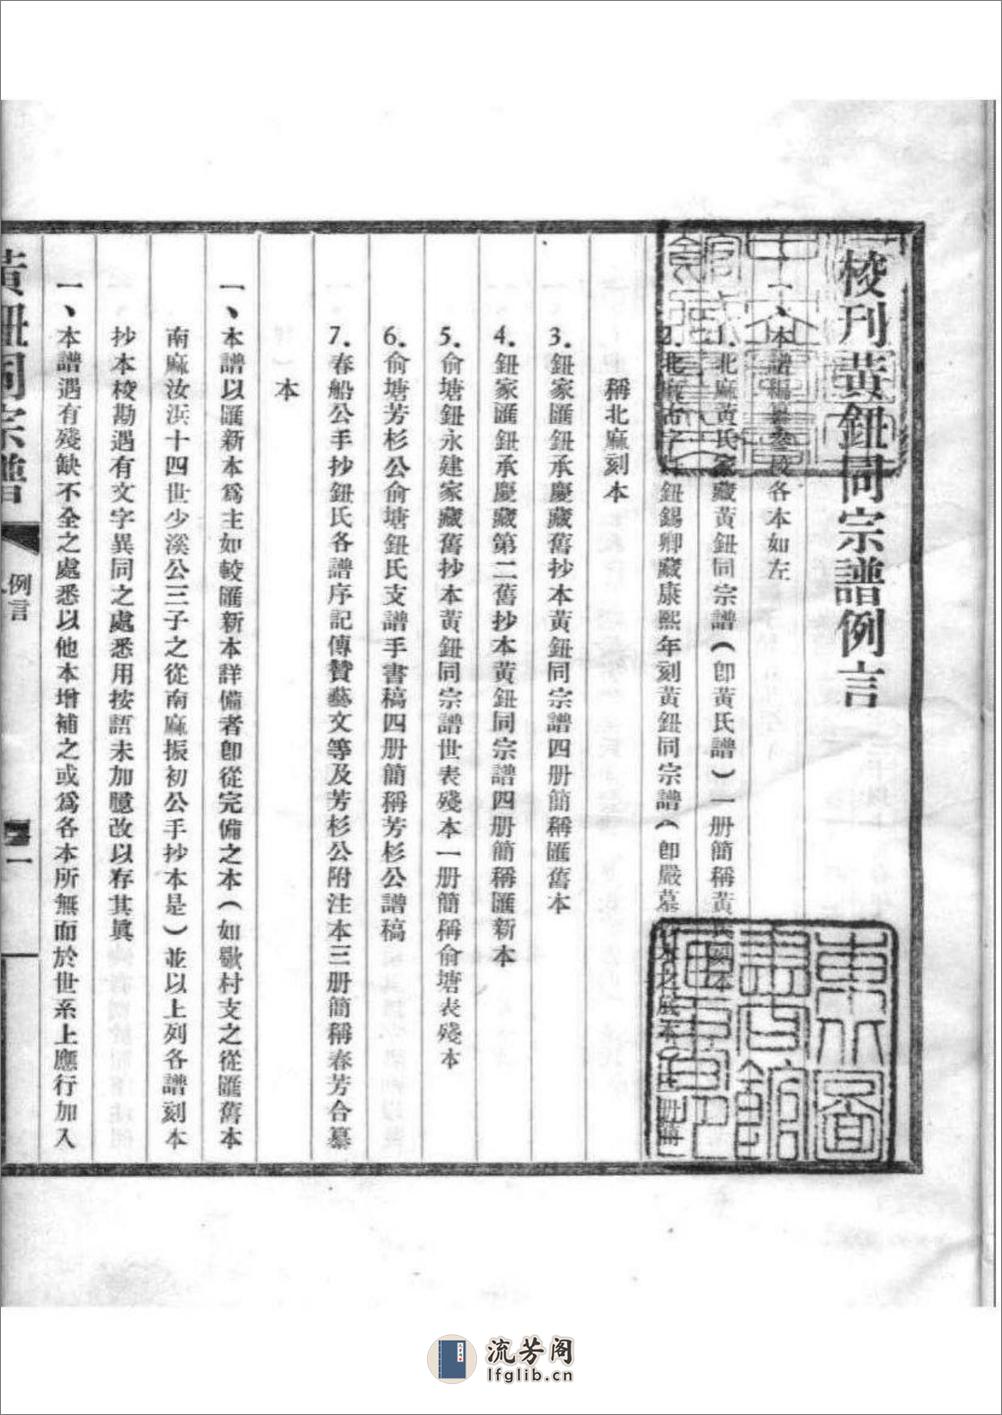 校刊黃鈕同宗譜例言
一、本譜編纂參攷各本如左
1.北麻黃氏家藏黃鈕同宗譜(卽黃氏譜)一册簡稱黃氏刻本
2.北麻古字 鈕錫卿藏康熙年刻黃鈕同宗譜(卽嚴墓 册簡
稱北麻刻本
3.鈕家匯鈕承慶藏舊抄本黃鈕同宗譜四册簡稱匯舊本
4.鈕家匯鈕承慶藏第二舊抄本黃鈕同宗譜四册簡稱匯新本
5.俞塘鈕永建家藏舊抄本黃鈕同宗譜世表殘本一册簡稱俞塘表殘本
6.俞塘芳杉公俞塘鈕氏支譜手書稿四册簡稱芳杉公譜稿
7.春船公手抄鈕氏各譜序記傳贊藝文等及芳杉公附注本三册簡稱春芳合纂
本
一、本譜以匯新本爲主如較匯新本詳備者卽從完備之本(如歇村支之從匯舊本
南麻汝浜十四世少溪公三子之從南麻振初公手抄本是)並以上列各譜刻本
抄本校勘遇有文字異同之處悉用按語未加臆改以存其眞
一、本譜遇有殘缺不全之處悉以他本增補之或爲各本所無而於世系上應行加入
黃鈕同宗譜
例言
一
東北圖
書館
流芳阁
lfglib.cn